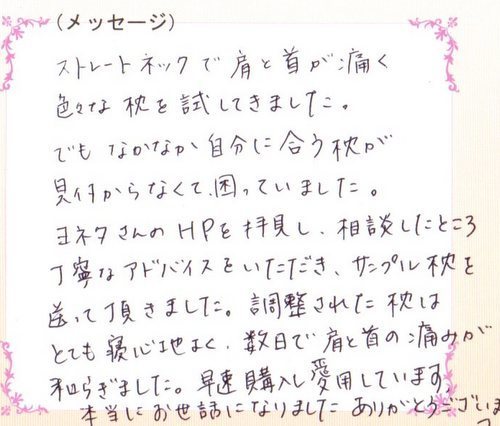 (メッセージ)
ストレートネックで肩と首が痛く
色々な枕を試してきました。
でもなかなか自分に合う枕が
見付からなくて、困っていました。
ヨネタさんのHPを拝見し、相談したところ
丁寧なアドバイスをいただき、サンプル枕を
送って頂きました。調整された枕は
とても寝心地よく、数日で肩と首の痛みが
和らぎました。早速購入し愛用しています。
本当にお世話になりました ありがとうございま